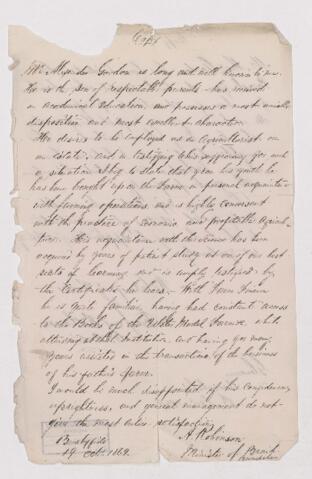 Copy
Mr. Alexander Gordon is long and well known to me.
He is the son of respectable parents - has received
an academical education and possesses a most amiable
disposition and most excellent character.
He desires to be employed as an Agriculturist on
an estate, and in testifying to his efficiency for such
a situation I beg to state that from his youth he
has been brought up on the Farm in personal acquaintance
with farming operations, and is highly conversant
with the practice of economic and profitable Agricul-
ture. His acquaintance with the science has been
acquired by years of patient study at one of our best
seats of learning and is amply testified by
the Certificates he bears. With Farm
he is quite familiar, having had constant access
to the Books of the Model Farm, while
attending at that Institution, and having for many
years assisted in the transaction of the business
of his father's farm.
I would be much disappointed if his Competency
uprightness, and general management do not
give the most entire satisfaction.
A Robinson
Minister of
19 Oct. 1869.